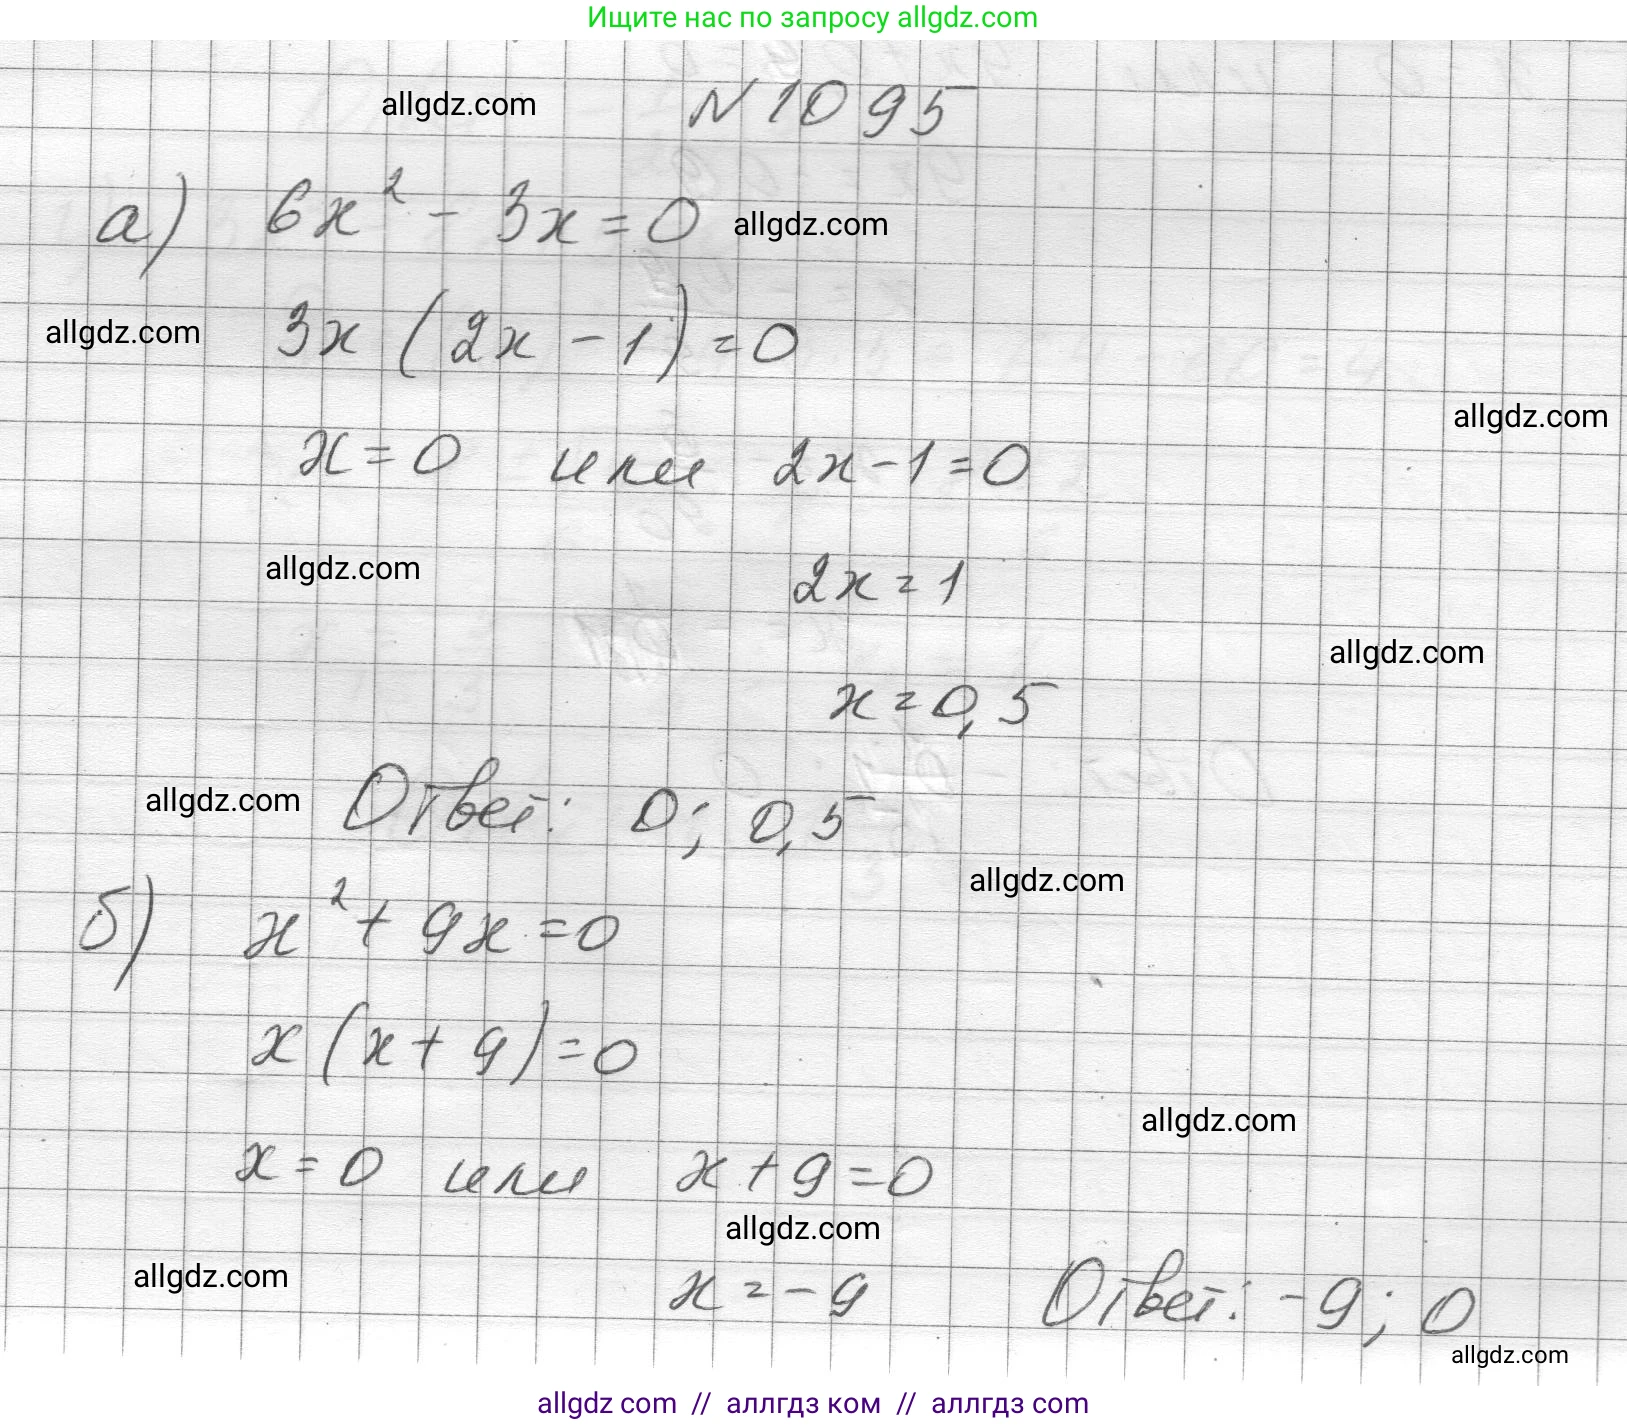 Ищите нас по запросу allgdz.com
allgdz.com N 1095
а) 6x² - 3x = 0 allgdz.com
allgdz.com 3x (2x - 1) = 0
allgdz.com
x = 0 или 2x - 1 = 0
allgdz.com 2x = 1
allgdz.com
x = 0,5
allgdz.com Ответ: 0; 0,5
allgdz.com
б) x² + 9x = 0
x (x + 9) = 0
allgdz.com
x = 0 или x + 9 = 0
allgdz.com
allgdz.com x = -9 Ответ: -9; 0
allgdz.com
allgdz com // аллгдз ком // аллгдз com